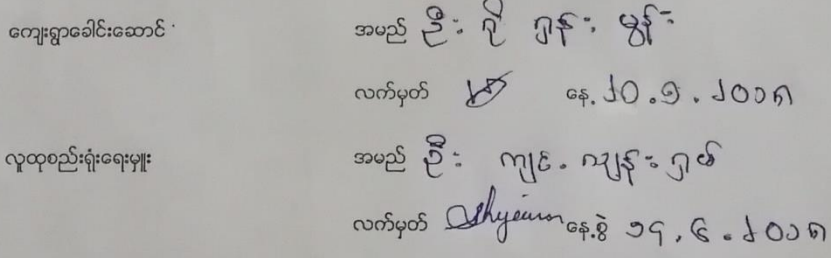 ကျေးရွာခေါင်းဆောင် အမည် ဦး ဂို ဂွန်း မွန်း
လက်မှတ် နေ့. ၂၀.၅.၂၀၁၈
လူထုစည်းရုံးရေးမှူး အမည် ဦး ကျင. ကျန်း ရှမ်
လက်မှတ် နေ့စွဲ ၁၄.၆.၂၀၁၈